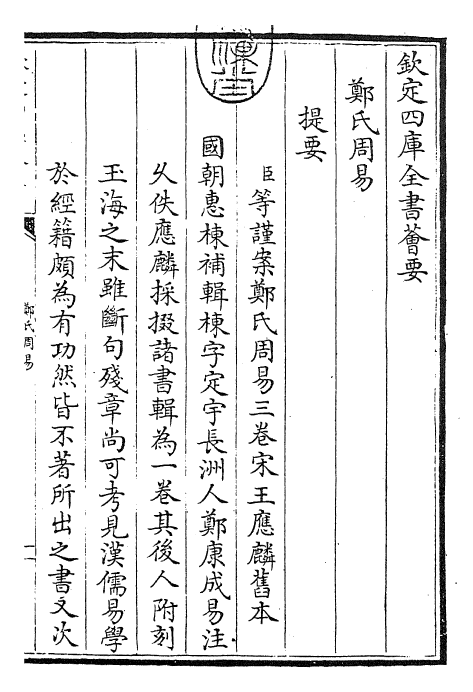 欽定四庫全書薈要
鄭氏周易
提要
臣等謹案鄭氏周易三卷宋王應麟舊本
國朝惠棟補輯棟字定宇長洲人鄭康成易注
乆佚應麟採掇諸書輯為一卷其後人附刻
玉海之末雖斷句殘章尚可考見漢儒易學
於經籍頗為有功然皆不著所出之書又次
鄭氏周易
一